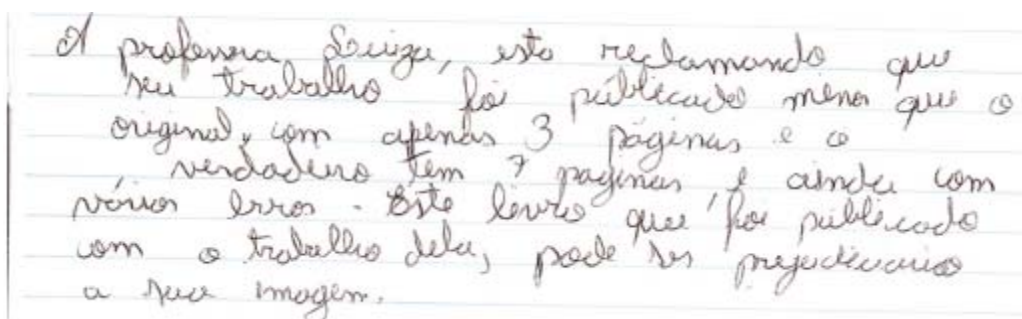 A professora Luiza, esta reclamando que
seu trabalho foi públicado menos que o
original, com apenas 3 páginas e o
verdadeiro tem 7 paginas, e ainda com
vários erros. Este livro que foi publicado
com o trabalho dela, pode ser prejudiciario
a sua imagem.